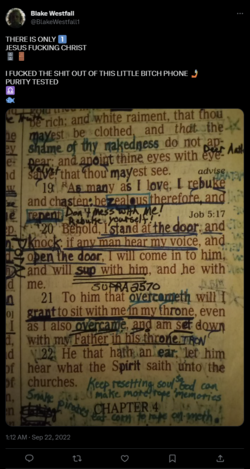 Blake Westfall
@BlakeWestfall1
THERE IS ONLY 1️⃣
JESUS FUCKING CHRIST
I FUCKED THE SHIT OUT OF THIS LITTLE BITCH PHONE 🤳
PURITY TESTED
be rich; and white raiment, that thou
mayest be clothed, and that the
shame of thy nakedness do not ap-
pear; and anoint thine eyes with eye-
that thou mayest see. advise
19 As many as I love, I rebuke
and chasten: be zealous therefore, and
repent. Don't mess with Me!
Rebuke yourself Job 5:17
20 Behold, I stand at the door, and
knock: if any man hear my voice, and
open the door, I will come in to him,
and will sup with him, and he with
me.
SUPRA2570
21 To him that overcometh will I
grant to sit with me in my throne, even
as I also overcame, and am set down
with my Father in his throne. TRON
22 He that hath an ear, let him
hear what the Spirit saith unto the
churches. Keep resetting souls God can
make more memories
CHAPTER 4
1:12 AM · Sep 22, 2022